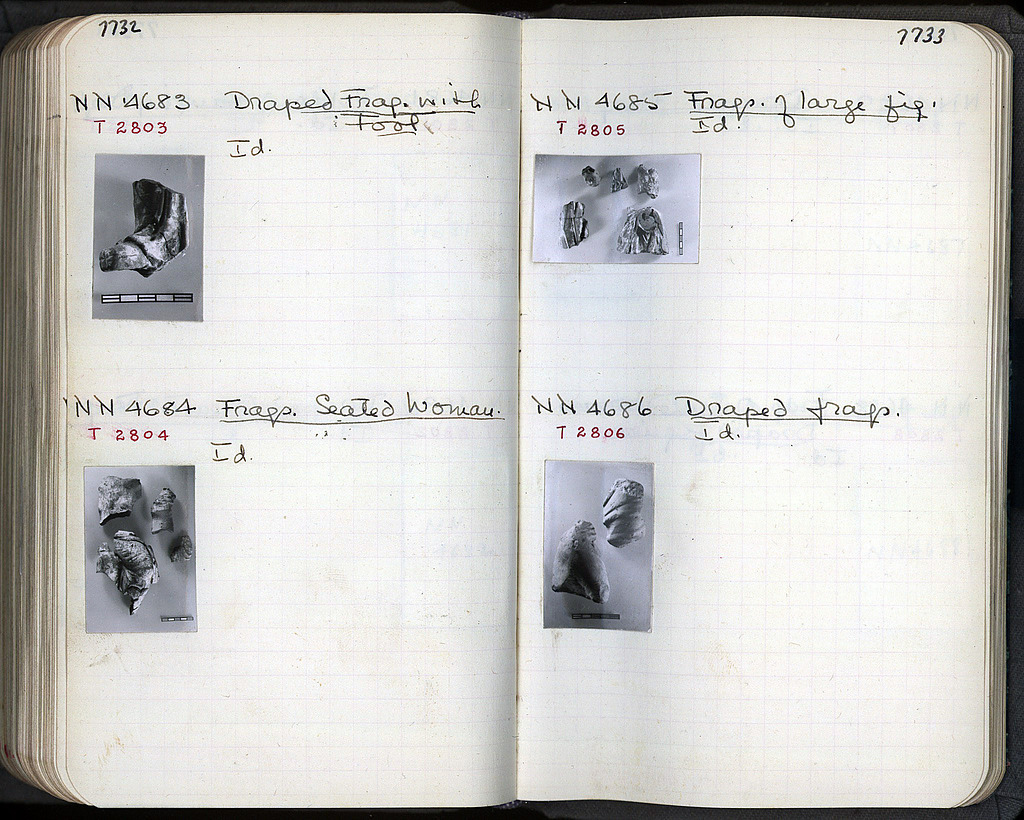 7732
NN 4683 Draped Frag. with
T 2803 Foot
Id.
NN 4684 Frags. Seated Woman.
T 2804
Id.
7733
NN 4685 Frags. of large fig.
T 2805 Id.
NN 4686 Draped frags.
T 2806 Id.